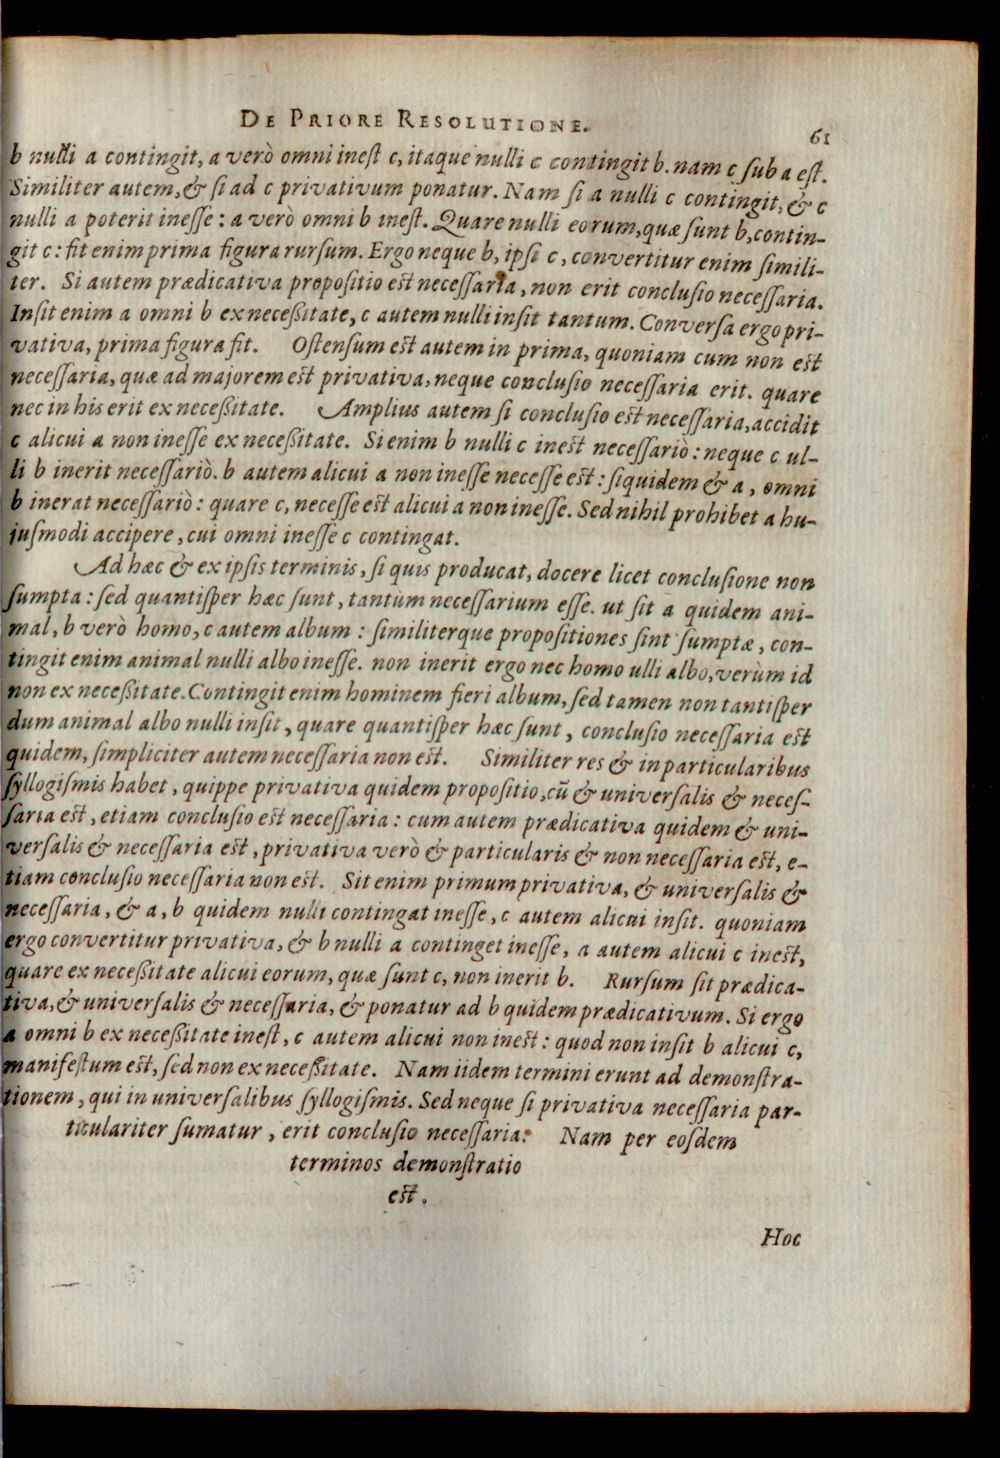 DE PRIORE RESOLUTIONE. 61
b nulli a contingit, a verò omni inest c, itaque nulli c contingit b. nam c sub a est.
Similiter autem, & si ad c privativum ponatur. Nam si a nulli c contingit, & c
nulli a poterit inesse: a verò omni b inest. Quare nulli eorum, quæ sunt b, contin-
git c: fit enim prima figura rursum. Ergo neque b, ipsi c, convertitur enim simili-
ter. Si autem prædicativa propositio est necessaria, non erit conclusio necessaria.
Insit enim a omni b ex necessitate, c autem nulli insit tantum. Conversa ergo pri-
vativa, prima figura fit. Ostensum est autem in prima, quoniam cum non est
necessaria, quæ ad majorem est privativa, neque conclusio necessaria erit. quare
nec in his erit ex necessitate. Amplius autem si conclusio est necessaria, accidit
c alicui a non inesse ex necessitate. Si enim b nulli c inest necessariò: neque c ul-
li b inerit necessariò. b autem alicui a non inesse necesse est: siquidem & a, omni
b inerat necessariò: quare c, necesse est alicui a non inesse. Sed nihil prohibet a hu-
jusmodi accipere, cui omni inesse c contingat.
Ad hæc & ex ipsis terminis, si quis producat, docere licet conclusione non
sumpta: sed quantisper hæc sunt, tantùm necessarium esse. ut sit a quidem ani-
mal, b verò homo, c autem album: similiterque propositiones sint sumptæ, con-
tingit enim animal nulli albo inesse. non inerit ergo nec homo ulli albo, verùm id
non ex necessitate. Contingit enim hominem fieri album, sed tamen non tantisper
dum animal albo nulli insit, quare quantisper hæc sunt, conclusio necessaria est
quidem, simpliciter autem necessaria non est. Similiter res & in particularibus
syllogismis habet, quippe privativa quidem propositio, cū & universalis & neces-
saria est, etiam conclusio est necessaria: cum autem prædicativa quidem & uni-
versalis & necessaria est, privativa verò & particularis & non necessaria est, e-
tiam conclusio necessaria non est. Sit enim primum privativa, & universalis &
necessaria, & a, b quidem nulli contingat inesse, c autem alicui insit. quoniam
ergo convertitur privativa, & b nulli a continget inesse, a autem alicui c inest,
quare ex necessitate alicui eorum, quæ sunt c, non inerit b. Rursum sit prædica-
tiva, & universalis & necessaria, & ponatur ad b quidem prædicativum. Si ergo
a omni b ex necessitate inest, c autem alicui non inest: quod non insit b alicui c,
manifestum est, sed non ex necessitate. Nam iidem termini erunt ad demonstra-
tionem, qui in universalibus syllogismis. Sed neque si privativa necessaria par-
ticulariter sumatur, erit conclusio necessaria: Nam per eosdem
terminos demonstratio
est.
Hoc